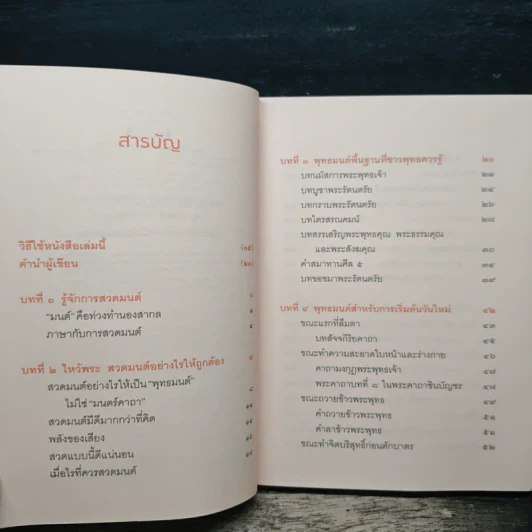 สารบัญ
วิธีใช้หนังสือเล่มนี้
คำนำผู้เขียน
บทที่ ๑ รู้จักการสวดมนต์
"มนต์" คือท่วงทำนองสากล
ภาษากับการสวดมนต์
บทที่ ๒ ไหว้พระ สวดมนต์อย่างไรให้ถูกต้อง
สวดมนต์อย่างไรให้เป็น "พุทธมนต์" ๘
ไม่ใช่ "มนตร์คาถา"
สวดมนต์มีดีมากกว่าที่คิด
พลังของเสียง
สวดแบบนี้ดีแน่นอน
เมื่อไรที่ควรสวดมนต์
พุทธมนต์พื้นฐานที่ชาวพุทธควรรู้ ๒๐
บทนมัสการพระพุทธเจ้า ๒๑
บทบูชาพระรัตนตรัย ๒๔
บทกราบพระรัตนตรัย
บทไตรสรณคมน์ ๒๘
บทสรรเสริญพระพุทธคุณ พระธรรมคุณ
และพระสังฆคุณ ๓๐
คำสมาทานศีล ๕ ๓๔
บทขอขมาพระรัตนตรัย ๓๙
บทที่ ๔ พุทธมนต์สำหรับการเริ่มต้นวันใหม่ ๔๒
ขณะแรกที่ลืมตา ๔๓
บทสัจจกิริยคาถา ๔๕
ขณะทำความสะอาดใบหน้าและร่างกาย ๔๖
คาถามงกุฎพระพุทธเจ้า ๔๗
พระคาถาบทที่ ๘ ในพระคาถาชินบัญชร ๔๘
ขณะถวายข้าวพระพุทธ
คำถวายข้าวพระพุทธ ๕๑
คำลาข้าวพระพุทธ ๕๑
ขณะทำจิตบริสุทธิ์ก่อนตักบาตร ๕๒